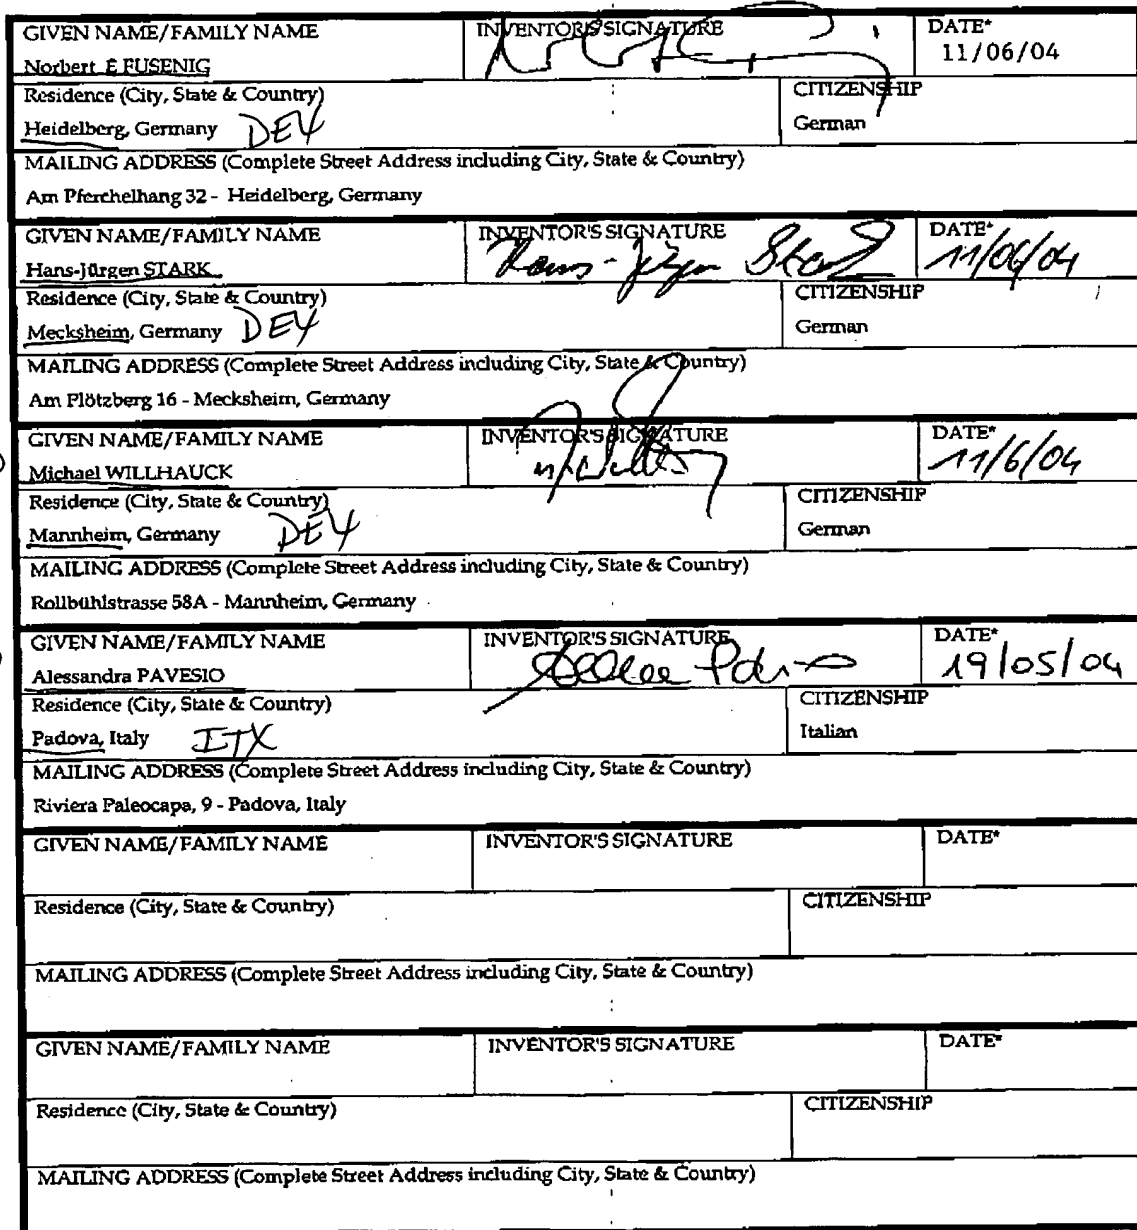 GIVEN NAME/FAMILY NAME INVENTOR'S SIGNATURE DATE*
Norbert E FUSENIG 11/06/04
Residence (City, State & Country) CITIZENSHIP
Heidelberg, Germany DEX German
MAILING ADDRESS (Complete Street Address including City, State & Country)
Am Pferchelhang 32 - Heidelberg, Germany
GIVEN NAME/FAMILY NAME INVENTOR'S SIGNATURE DATE*
Hans-Jürgen STARK Hans-Jürgen Stark 11/06/04
Residence (City, State & Country) CITIZENSHIP
Mecksheim, Germany DEX German
MAILING ADDRESS (Complete Street Address including City, State & Country)
Am Plötzberg 16 - Mecksheim, Germany
GIVEN NAME/FAMILY NAME INVENTOR'S SIGNATURE DATE*
Michael WILLHAUCK 11/6/04
Residence (City, State & Country) CITIZENSHIP
Mannheim, Germany DEX German
MAILING ADDRESS (Complete Street Address including City, State & Country)
Rollbühlstrasse 58A - Mannheim, Germany
GIVEN NAME/FAMILY NAME INVENTOR'S SIGNATURE DATE*
Alessandra PAVESIO 19/05/04
Residence (City, State & Country) CITIZENSHIP
Padova, Italy ITX Italian
MAILING ADDRESS (Complete Street Address including City, State & Country)
Riviera Paleocapa, 9 - Padova, Italy
GIVEN NAME/FAMILY NAME INVENTOR'S SIGNATURE DATE*
Residence (City, State & Country) CITIZENSHIP
MAILING ADDRESS (Complete Street Address including City, State & Country)
GIVEN NAME/FAMILY NAME INVENTOR'S SIGNATURE DATE*
Residence (City, State & Country) CITIZENSHIP
MAILING ADDRESS (Complete Street Address including City, State & Country)